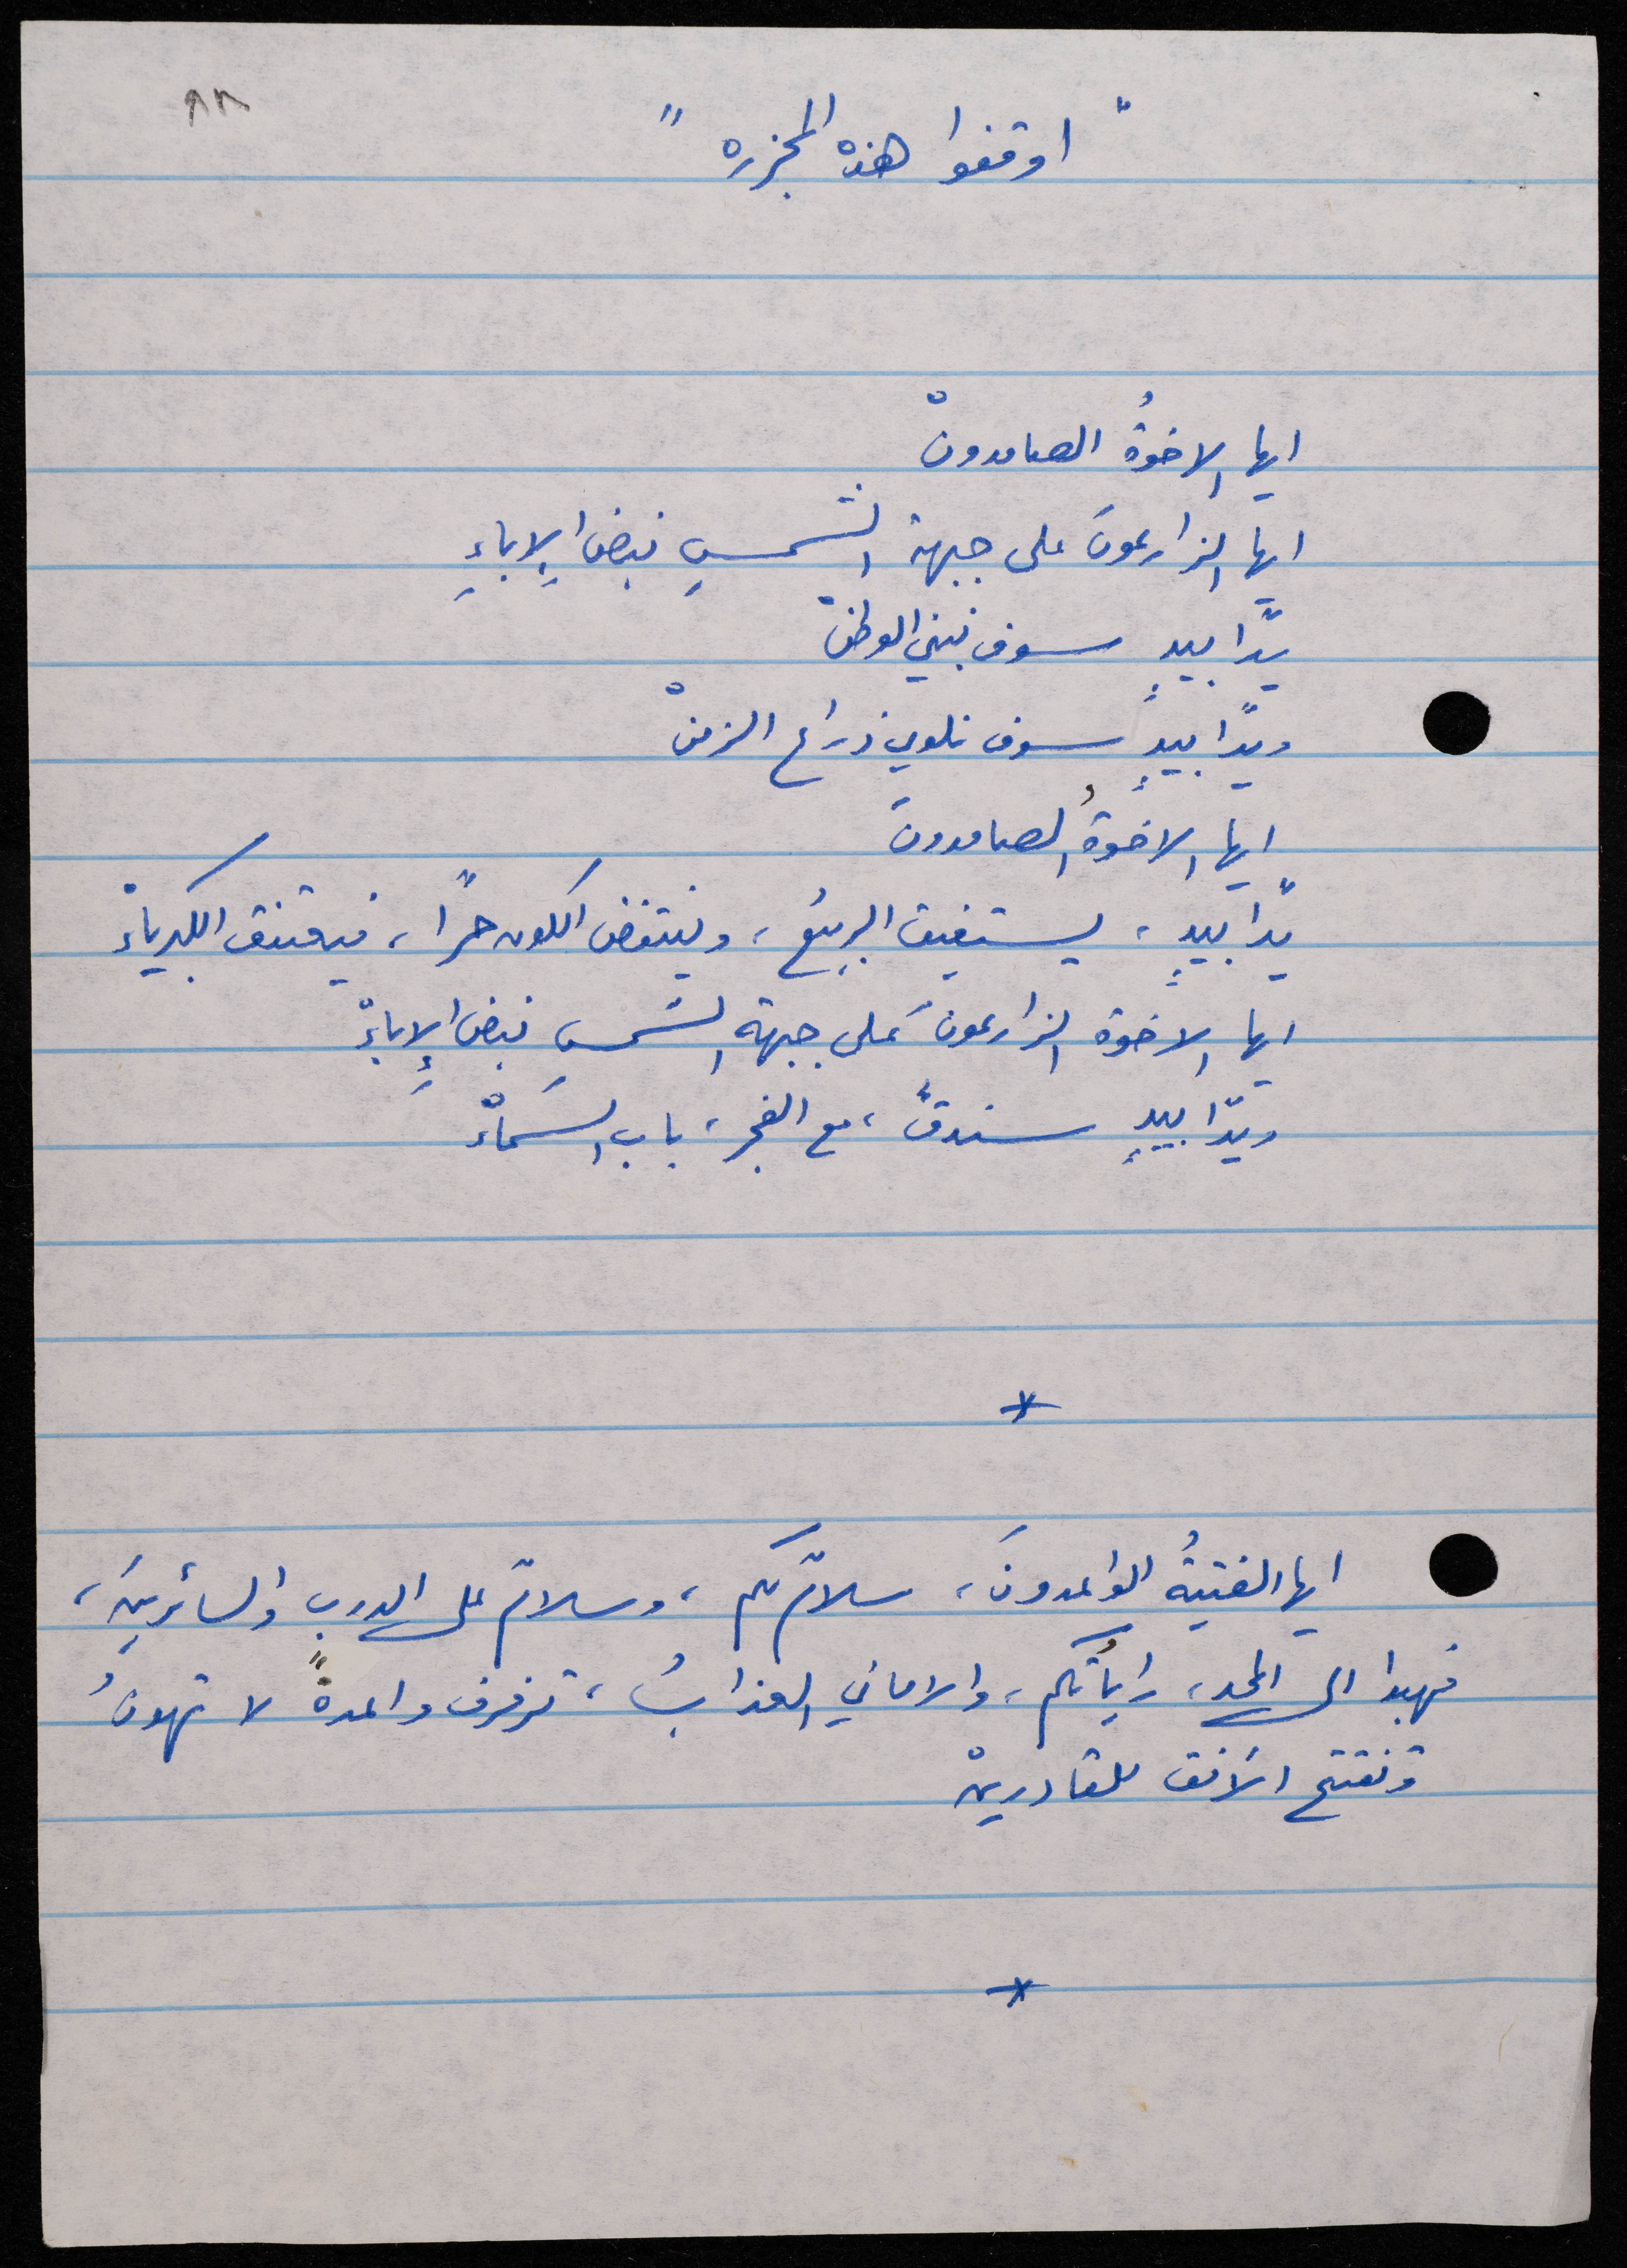 ٨٢
" اوقفوا هذه المجزره "
ايها الاخوةُ الصامدونْ
ايها الزارعونَ على جبهة الشمسِ نبض الإباءِ
يدًا بيدٍ سوف نبني الوطنْ
ويدًا بيدٍ سوف نلوي ذراع الزمنْ
ايها الاخوةُ الصامدونَ
يدًا بيدٍ ، يستفيق الربيعُ ، وينتفض الكون حرًا ، فيعتنق الكبرياءْ
ايها الاخوة الزارعونَ على جبهة الشمسِ نبض الإباءْ
ويدًا بيدٍ سندقُّ ، مع الفجر ، باب السَماءْ
*
ايها الفتيةُ الواعدونَ ، سلامٌ لكم ، وسلامٌ على الدرب والسائرينَ ،
فهبوا الى المجد ، راياتُكم ، والاماني العذابُ ، ترفرف واعدةً لا تهونُ
وتفتح الأفق للقادرينْ
*